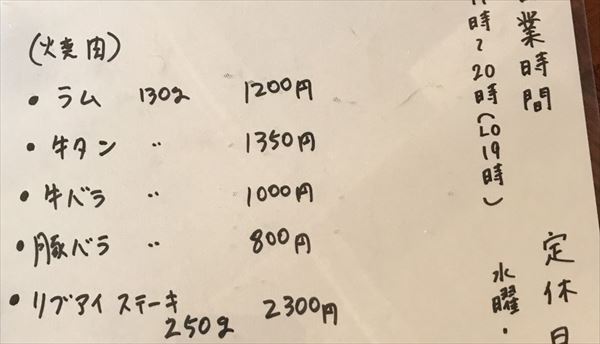 (焼肉)
・ラム 130g 1200円
・牛タン 〃 1350円
・牛バラ 〃 1000円
・豚バラ 〃 800円
・リブアイステーキ
250g 2300円
業時間
時〜20時(LO19時)
定休日
水曜・